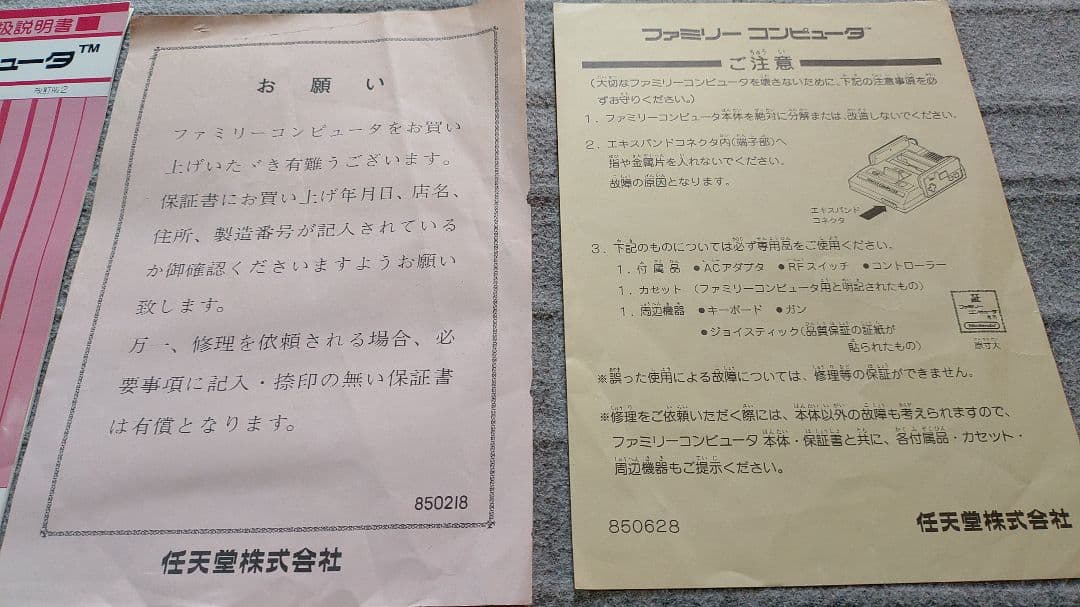 扱説明書
ュータ™
改訂版2
お願い
ファミリーコンピュータをお買い
上げいたゞき有難うございます。
保証書にお買い上げ年月日、店名、
住所、製造番号が記入されている
か御確認くださいますようお願い
致します。
万一、修理を依頼される場合、必
要事項に記入・捺印の無い保証書
は有償となります。
850218
任天堂株式会社
ファミリー コンピュータ™
ご注意
(大切なファミリーコンピュータを壊さないために、下記の注意事項を必
ずお守りください。)
1．ファミリーコンピュータ本体を絶対に分解または、改造しないでください。
2．エキスパンドコネクタ内(端子部)へ
指や金属片を入れないでください。
故障の原因となります。
エキスパンド
コネクタ
3．下記のものについては必ず専用品をご使用ください。
1．付属品 ●ACアダプタ ●RFスイッチ ●コントローラー
1．カセット (ファミリーコンピュータ用と明記されたもの)
1．周辺機器 ●キーボード ●ガン
●ジョイスティック(品質保証の証紙が
貼られたもの)
証
ファミリー
コンピュータ
専用
Nintendo
原寸大
※誤った使用による故障については、修理等の保証ができません。
※修理をご依頼いただく際には、本体以外の故障も考えられますので、
ファミリーコンピュータ 本体・保証書と共に、各付属品・カセット・
周辺機器もご提示ください。
850628
任天堂株式会社